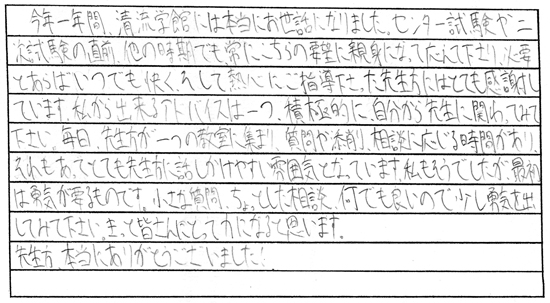 今年一年間、清流学館には本当にお世話になりました。センター試験か二
次試験の直前、他の時期でも常にこちらの要望に親身になって応えて下さり、必要
とあらばいつでも快く、そして熱心にご指導下さった先生方にはとても感謝し
ています。私から出来るアドバイスは一つ、積極的に、自分から先生に関わってみて
下さい。毎日、先生方が一つの教室に集まり、質問が来則、相談に応じる時間があり、
それもあってとても先生方に話しかけやすい雰囲気となっています。私もそうでしたが、最初
は勇気が要るものです。小さな質問、ちょっとした相談、何でも良いので少し勇気を出
してみて下さい。きっと皆さんにとって力になると思います。
先生方、本当にありがとうございました!